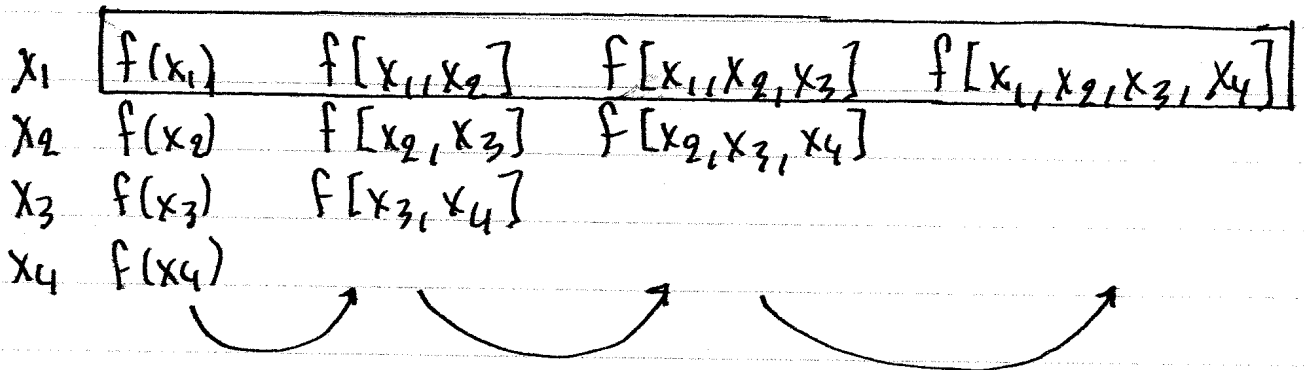 x₁ f(x₁) f[x₁,x₂] f[x₁,x₂,x₃] f[x₁,x₂,x₃,x₄]
x₂ f(x₂) f[x₂,x₃] f[x₂,x₃,x₄]
x₃ f(x₃) f[x₃,x₄]
x₄ f(x₄)